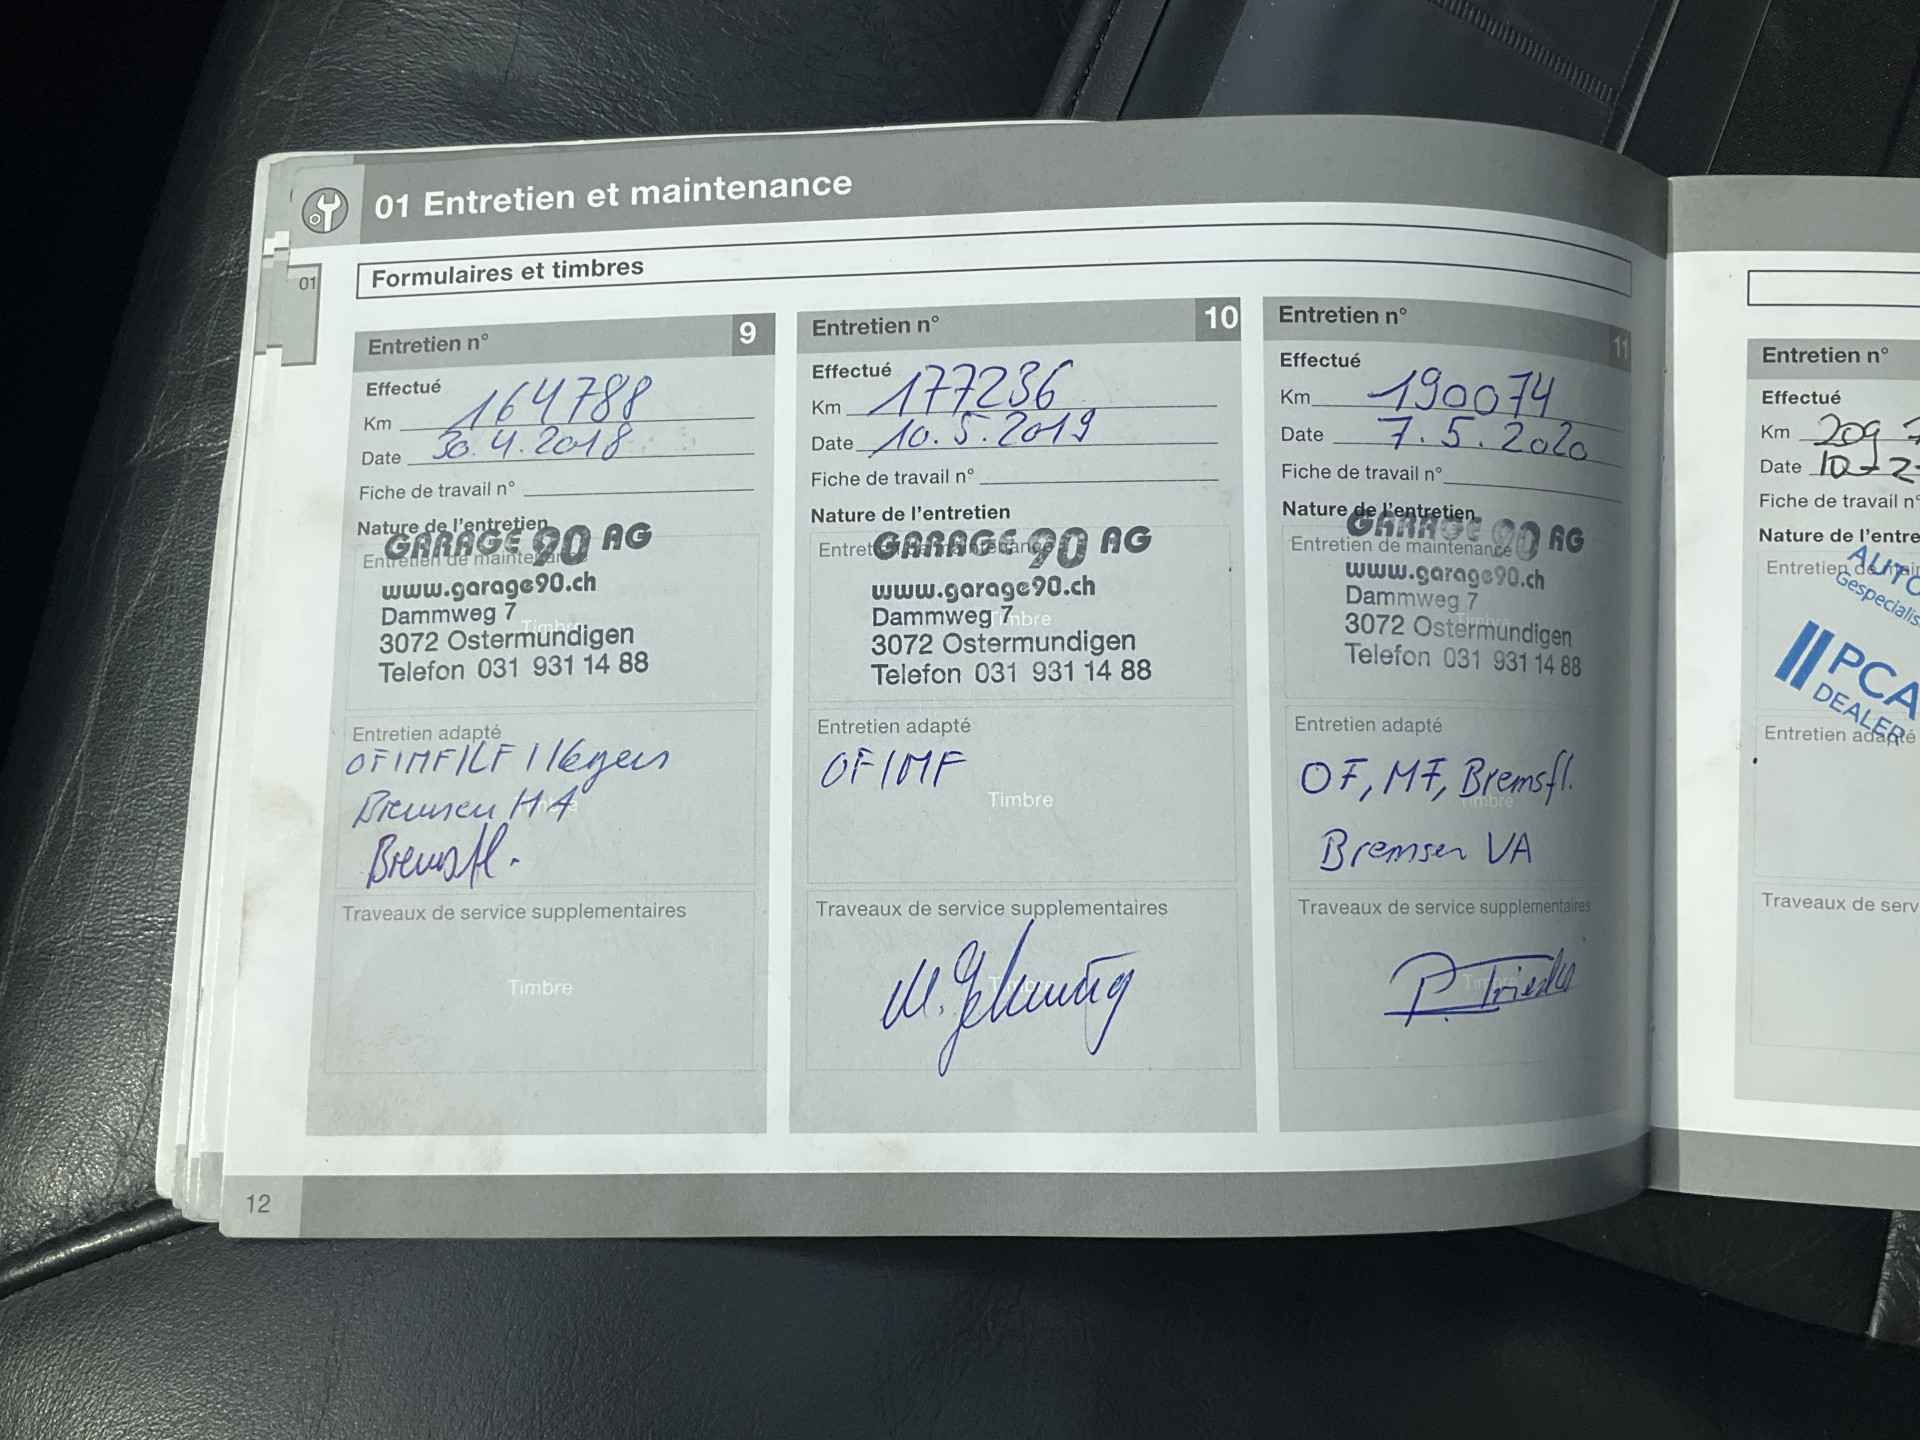 01 Entretien et maintenance
01
Formulaires et timbres
Entretien n° 9
Effectué
Km 164788
Date 30.4.2018
Fiche de travail n°
Nature de l'entretien
Entretien de maintenance
GARAGE 90 AG
www.garage90.ch
Dammweg 7
Timbre
3072 Ostermundigen
Telefon 031 931 14 88
Entretien adapté
OF/MF/LF /
Bremsen HA
Timbre
Bremsfl.
Traveaux de service supplementaires
Timbre
Entretien n° 10
Effectué
Km 177236
Date 10.5.2019
Fiche de travail n°
Nature de l'entretien
Entretien de maintenance
GARAGE 90 AG
www.garage90.ch
Dammweg 7
Timbre
3072 Ostermundigen
Telefon 031 931 14 88
Entretien adapté
OF/MF
Timbre
Traveaux de service supplementaires
Timbre
Entretien n° 11
Effectué
Km 190074
Date 7.5.2020
Fiche de travail n°
Nature de l'entretien
GARAGE 90 AG
Entretien de maintenance
www.garage90.ch
Dammweg 7
Timbre
3072 Ostermundigen
Telefon 031 931 14 88
Entretien adapté
OF, MF, Bremsfl.
Timbre
Bremsen VA
Traveaux de service supplementaires
Timbre
12
Entretien n°
Effectué
Km 209
Date 10-2-
Fiche de travail n°
Nature de l'entre
Entretien de main
AUTO
Gespecialis
PCA
DEALER
Entretien adapté
Traveaux de serv